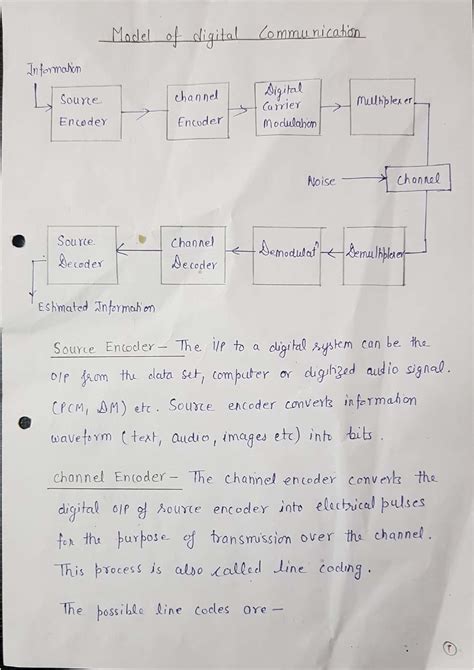 Model of digital Communication
Information
Source Encoder
channel Encoder
Digital Carrier Modulation
Multiplexer
Noise
Channel
Source Decoder
Channel Decoder
Demodulatⁿ
Demultiplexer
Estimated Information
Source Encoder - The i/p to a digital system can be the
o/p from the data set, computer or digitized audio signal.
(PCM, DM) etc. Source encoder converts information
waveform (text, audio, images etc) into bits.
Channel Encoder - The channel encoder converts the
digital o/p of source encoder into electrical pulses
for the purpose of transmission over the channel.
This process is also called line coding.
The possible line codes are -